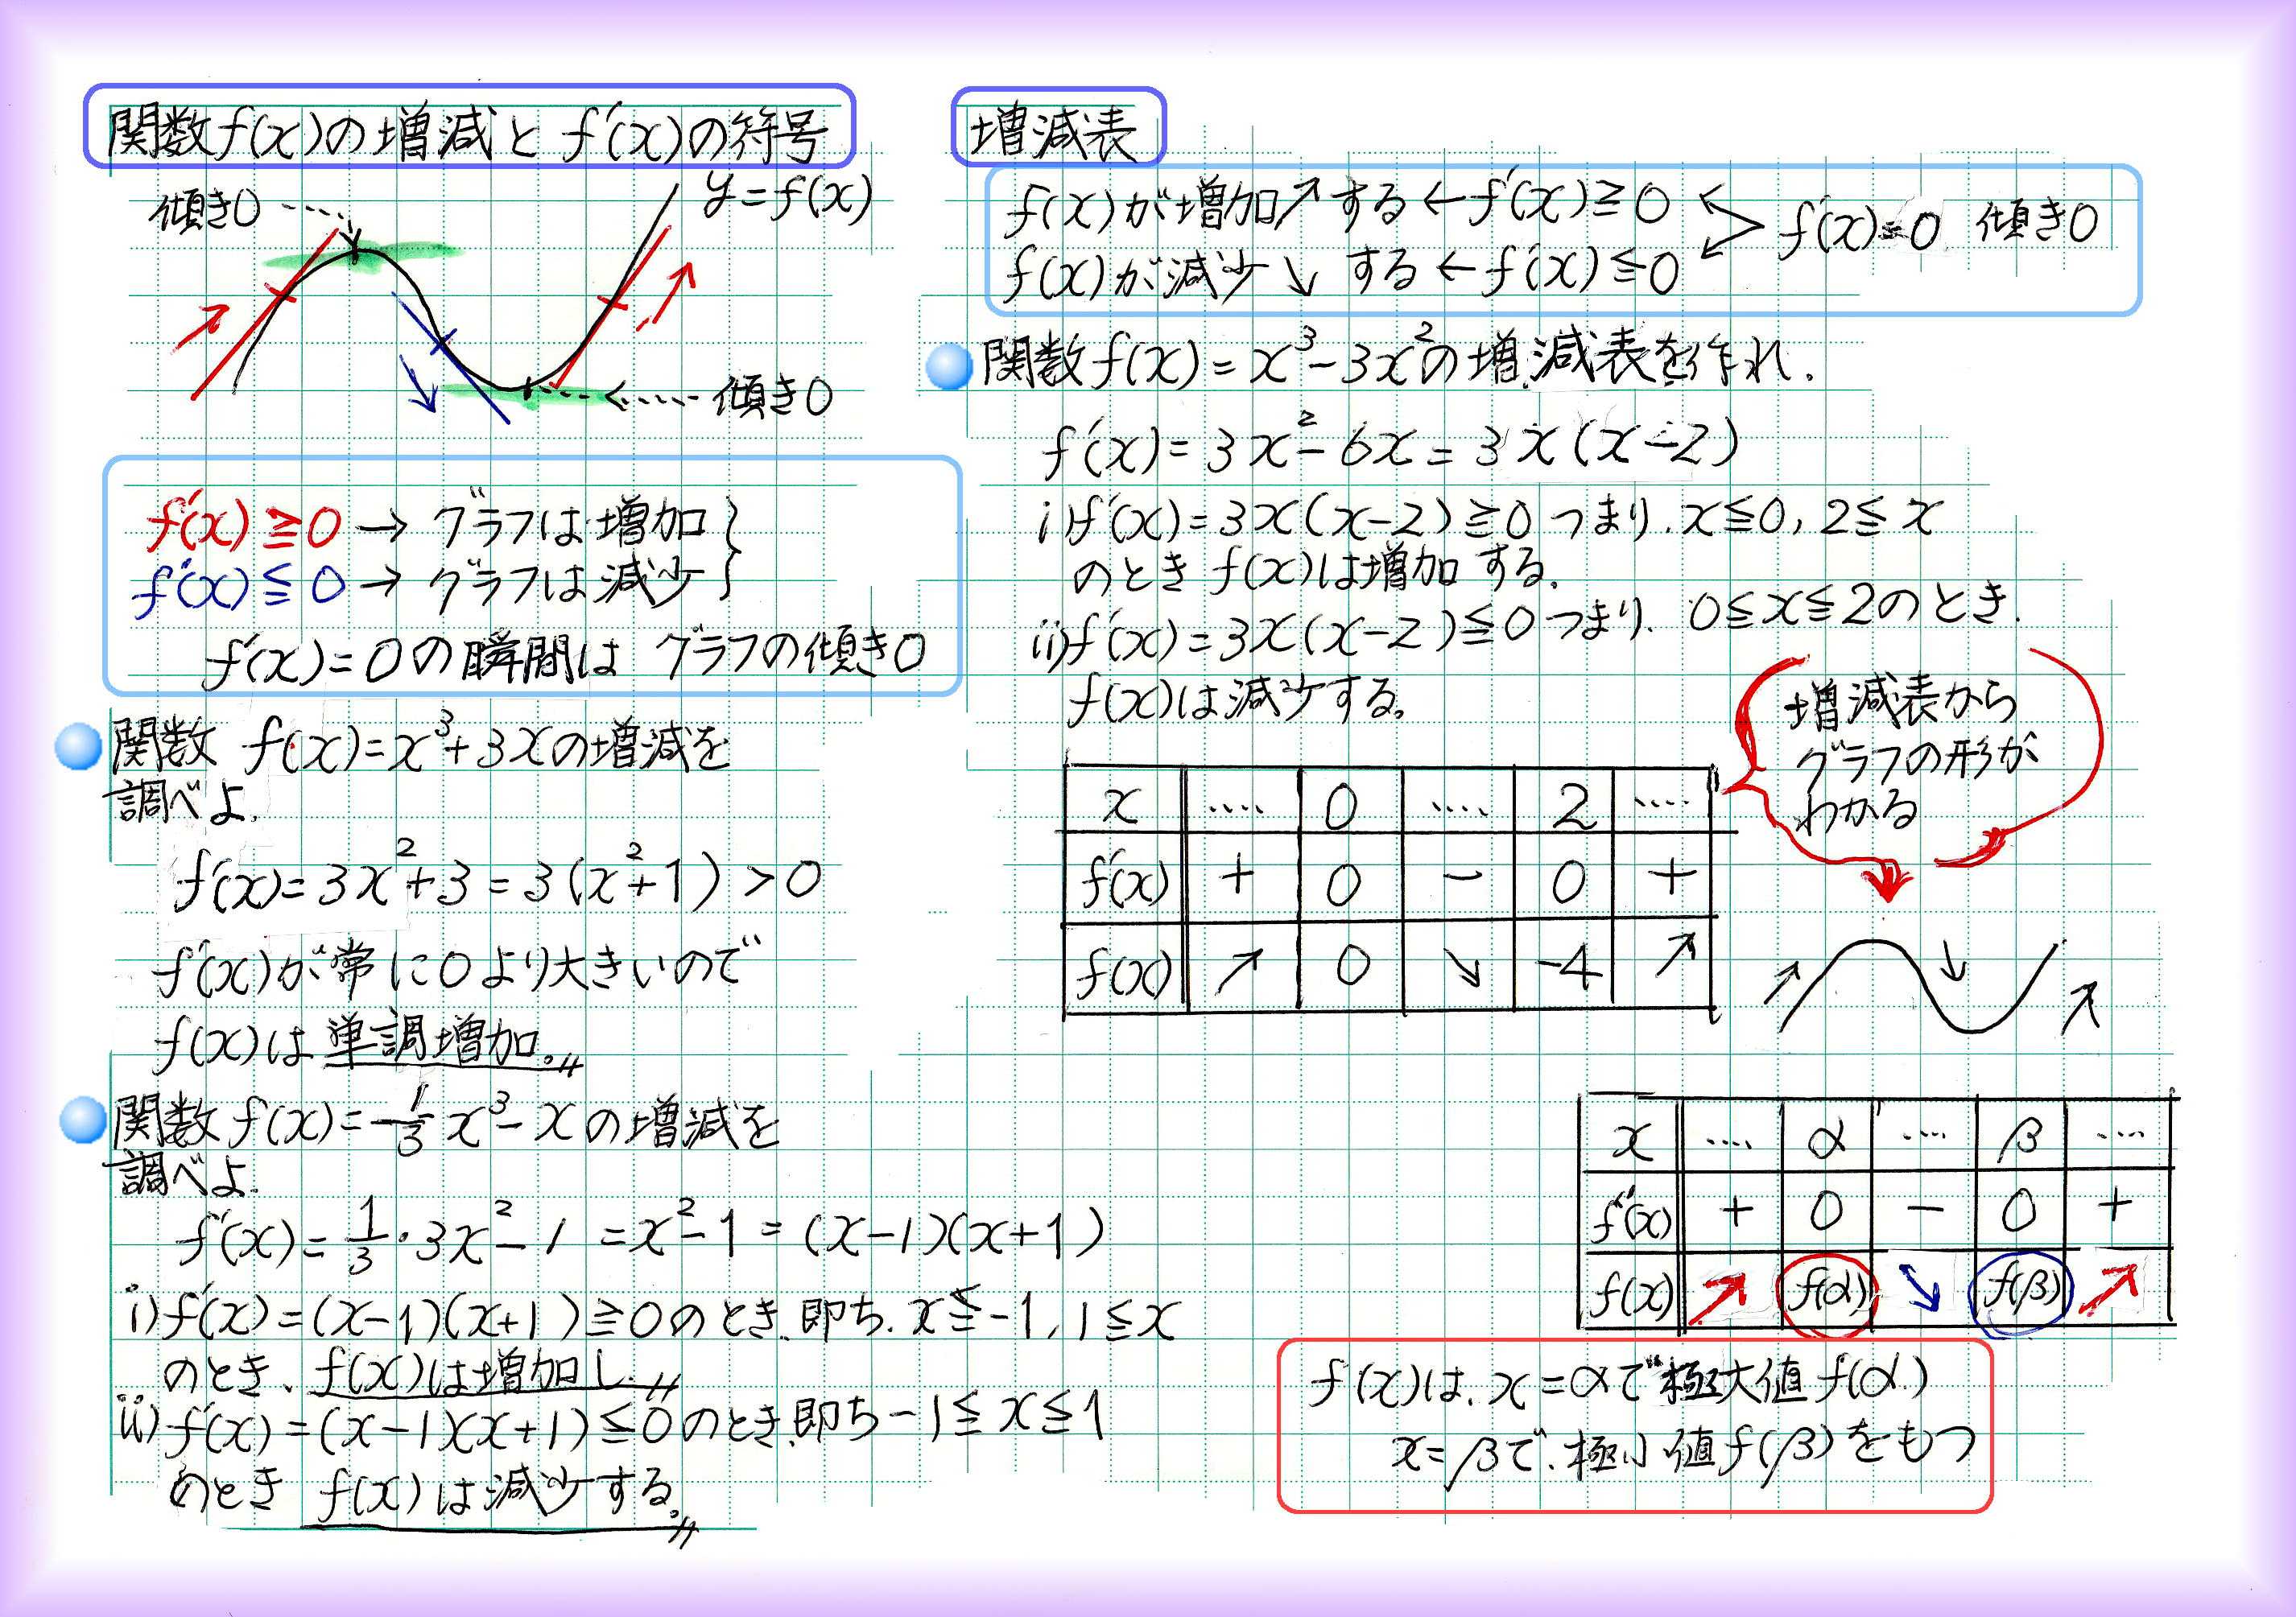 関数f(x)の増減とf'(x)の符号
傾き0
y=f(x)
傾き0
f'(x)≧0→グラフは増加
f'(x)≦0→グラフは減少
f'(x)=0の瞬間はグラフの傾き0
関数 f(x)=x³+3xの増減を
調べよ.
f'(x)=3x²+3=3(x²+1)>0
f'(x)が常に0より大きいので
f(x)は単調増加。〃
関数f(x)=-1/3x³-xの増減を
調べよ.
f'(x)=1/3・3x²-1=x²-1=(x-1)(x+1)
i)f'(x)=(x-1)(x+1)≧0のとき.即ち.x≦-1,1≦x
のとき、f(x)は増加し.〃
ii)f'(x)=(x-1)(x+1)≦0のとき.即ち-1≦x≦1
のとき f(x)は減少する。〃
増減表
f(x)が増加↗する←f'(x)≧0
f'(x)=0 傾き0
f(x)が減少↘する←f'(x)≦0
関数f(x)=x³-3x²の増減表を作れ.
f'(x)=3x²-6x=3x(x-2)
i)f'(x)=3x(x-2)≧0つまり.x≦0,2≦x
のときf(x)は増加する.
ii)f'(x)=3x(x-2)≦0つまり.0≦x≦2のとき.
f(x)は減少する。
増減表から
グラフの形が
わかる
x ‥‥ 0 ‥‥ 2 ‥‥
f'(x) + 0 - 0 +
f(x) ↗ 0 ↘ -4 ↗
x ‥‥ α ‥‥ β ‥‥
f'(x) + 0 - 0 +
f(x) ↗ f(α) ↘ f(β) ↗
f(x)は.x=αで極大値f(α)
x=βで.極小値f(β)をもつ